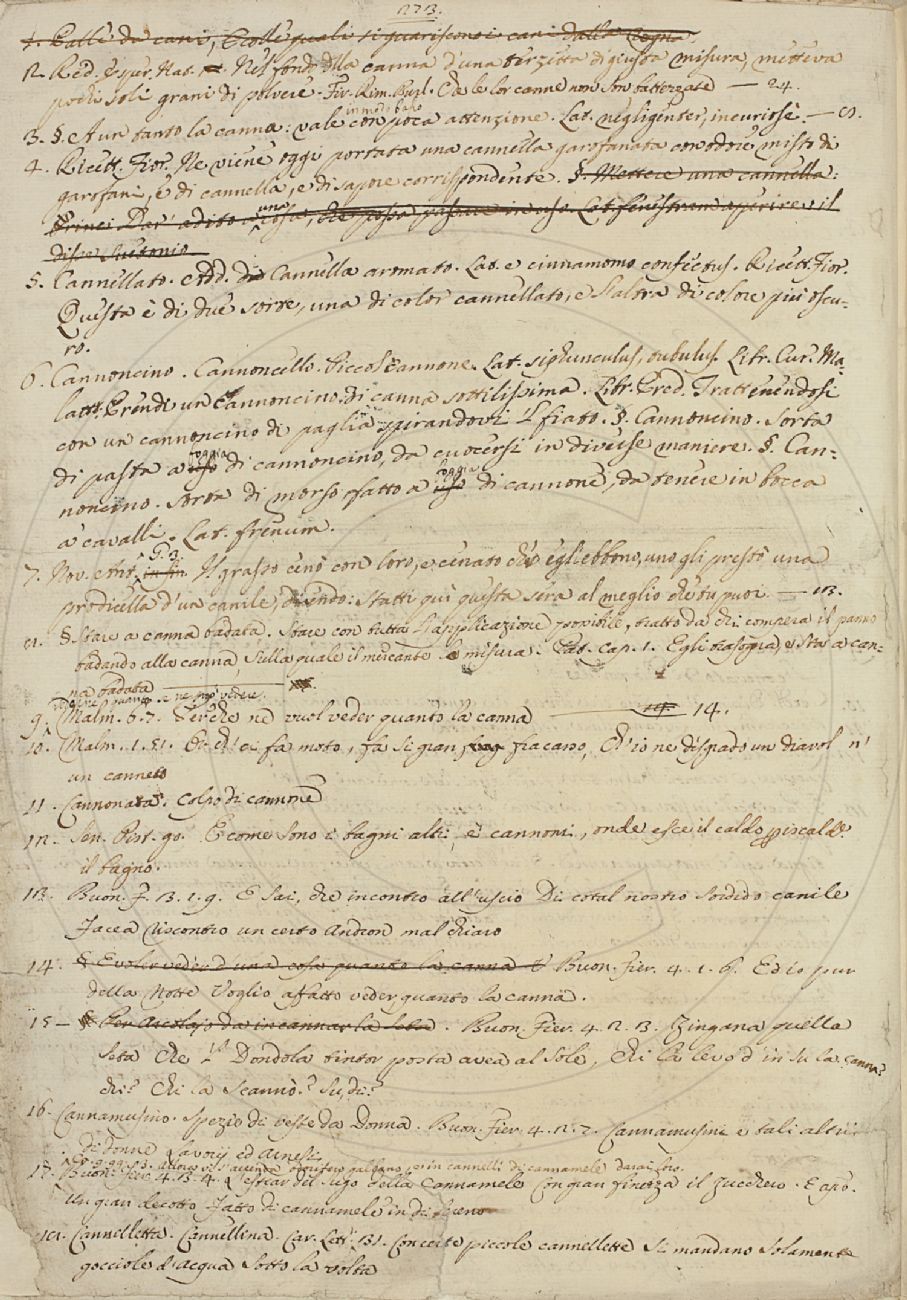 273.
1. Palle da cani, Colle quali si guariscono i cani dalla Rogna.
2. Red. Esper. Nat. Nel fondo della canna d'una terzetta di giusta misura, metteva
pochi soli grani di polvere. Fir. Rim. Burl. E che le lor canne non son battezzate — 24.
in modo basso
3. §. A un tanto la canna: vale con poca attenzione. Lat. negligenter, incuriose. —
4. Ricett. Fior. Ne viene oggi portata una cannella garofanata con odore misto di
garofani, e di cannella, e di sapore corrispondente. §. Mettere una cannella:
Dar' adito a una cosa, che possa passare in uso. Lat. fenestram aperire
disse Suetonio
5. Cannellato. Add. Da Cannella aromato. Lat. e cinnamomo confectus. Ricett. Fior.
Questa è di due sorte, una di color cannellato, e l'altra di colore più oscu-
ro.
6. Cannoncino. Cannoncello. Piccol Cannone. Lat. siphunculus, tubulus. Libr. Cur. Ma-
latt. Prendi un Cannoncino di canna sottilissima. Libr. Pred. Trattenendosi
con un cannoncino di paglia spirandovi il fiato. §. Cannoncino. Sorta
di pasta a foggia di cannoncino, da cuocersi in diverse maniere. §. Can-
noncino. Sorta di morso fatto a foggia di cannone, da tenere in bocca
a' cavalli. Lat. frenum.
7. Nov. Ant. Il grasso cenò con loro, e cenato ch'egli ebbono, uno gli prestò una
prodicella d'un canile, dicendo: Statti qui questa sera al meglio che tu puoi. — 13.
8. §. Stare a canna badata. Stare con tutta l'applicazione possibile, tratto da chi compera il panno
badando alla canna sulla quale il mercante lo misura. Pat. Cap. 1. Egli trasogna, e sta a can-
na badata
9. Malm. 6. 7. Perché ne vuol veder quanto la canna — 14.
10. Malm. 1. 51. Ch' ei fa moto, fa sì gran fracasso, Ch'io ne disgrado un diavol n'
un canneto
11. Cannonata. Colpo di cannone
12. Sen. Pist. 90. E come sono i bagni alti, e cannoni, onde esce il caldo riscald.
il bagno.
13. Buon. F. 3. 1. 9. E sai, che incontro all'uscio Di cotal nostro sordido canile
Jacea riscontro un certo Andron mal chiaro
14. § E voler veder d'una cosa quanto la canna. Buon. Fier. 4. 1. 6. Ed io pur
della Notte Voglio affatto veder quanto la canna.
15 — § Per Arcolajo da incannar la seta. Buon. Fier. 4. 2. 3. Zingana quella
seta che Dondola tintor posta avea al Sole, Chi la levò d' in su la canna?
chi? Chi la Scannò? Su, di?
16. Cannamusino. Spezie di veste da Donna. Buon. Fier. 4. 2. 7. Cannamusini e tali altri
Di donne Lavori ed Arnesi.
17. Buon. Fier. 4. 3. 4. Del sugo della Cannamele Con gran finezza il zucchero.
Un gran decotto Fatto di cannamele
18. Cannelletta. Cannellina. Car. Lett. 131. Con certe piccole cannellette Si mandano solamente
gocciole d'acqua Sotto la volta